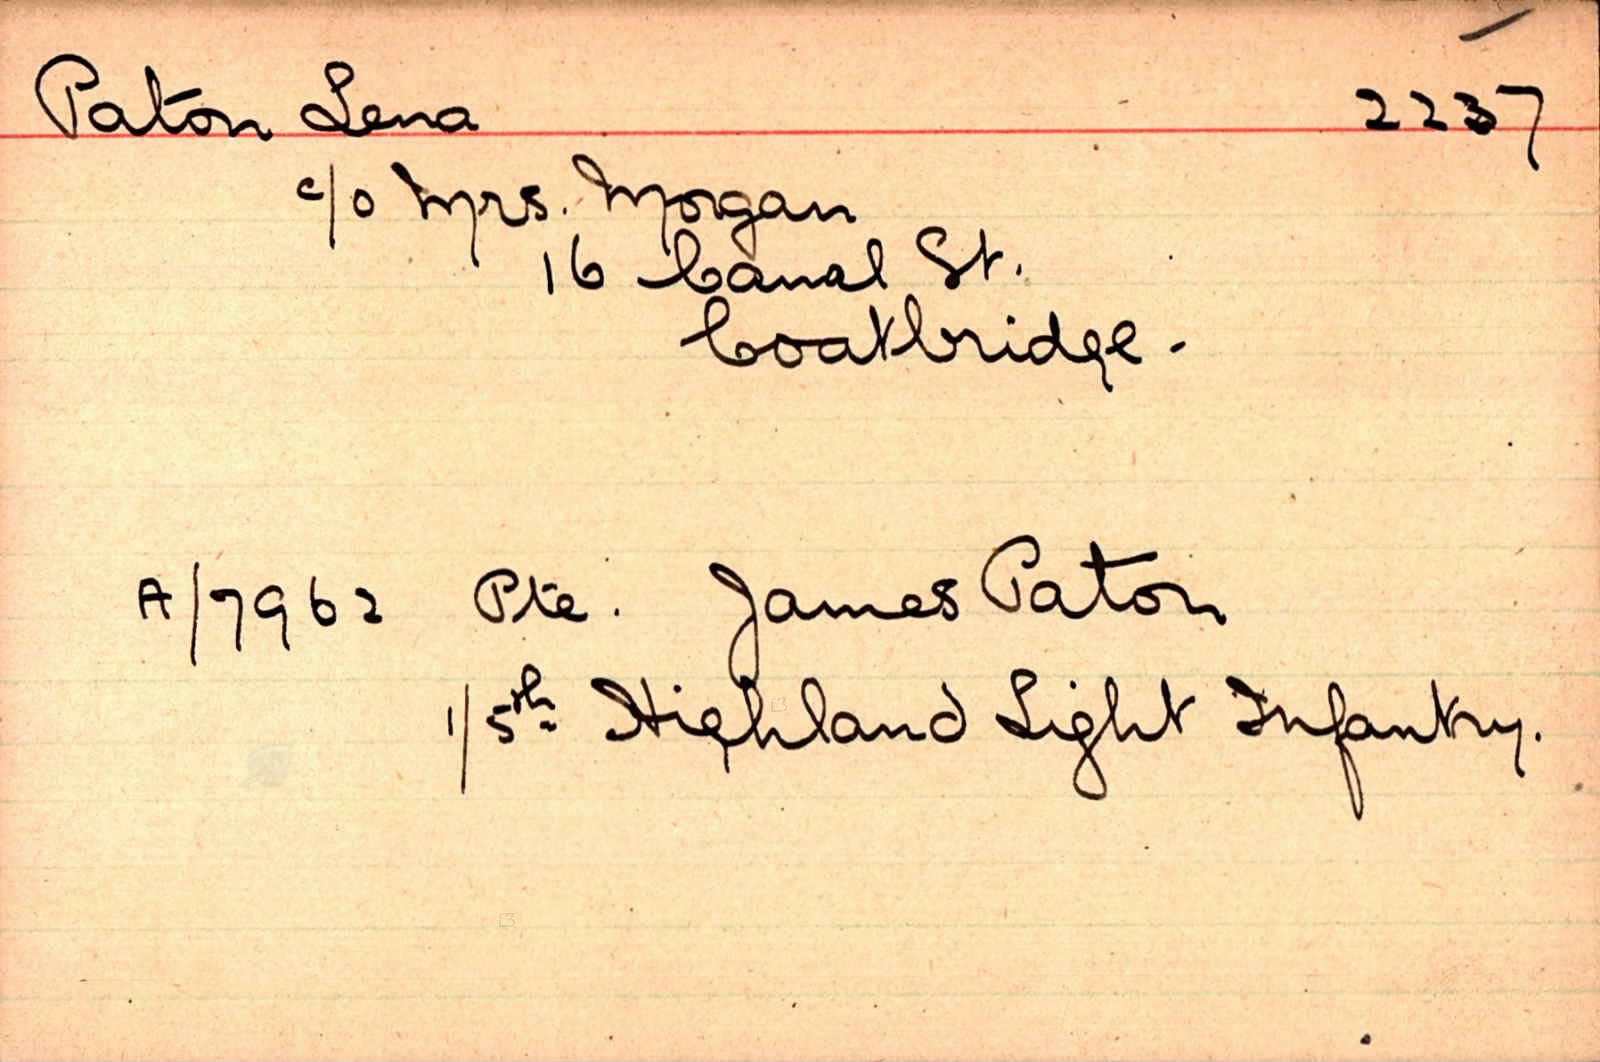 Paton Lena 2237
c/o Mrs. Morgan
16 Canal St.
Coatbridge -
A/7962 Pte. James Paton
1/5th Highland Light Infantry.